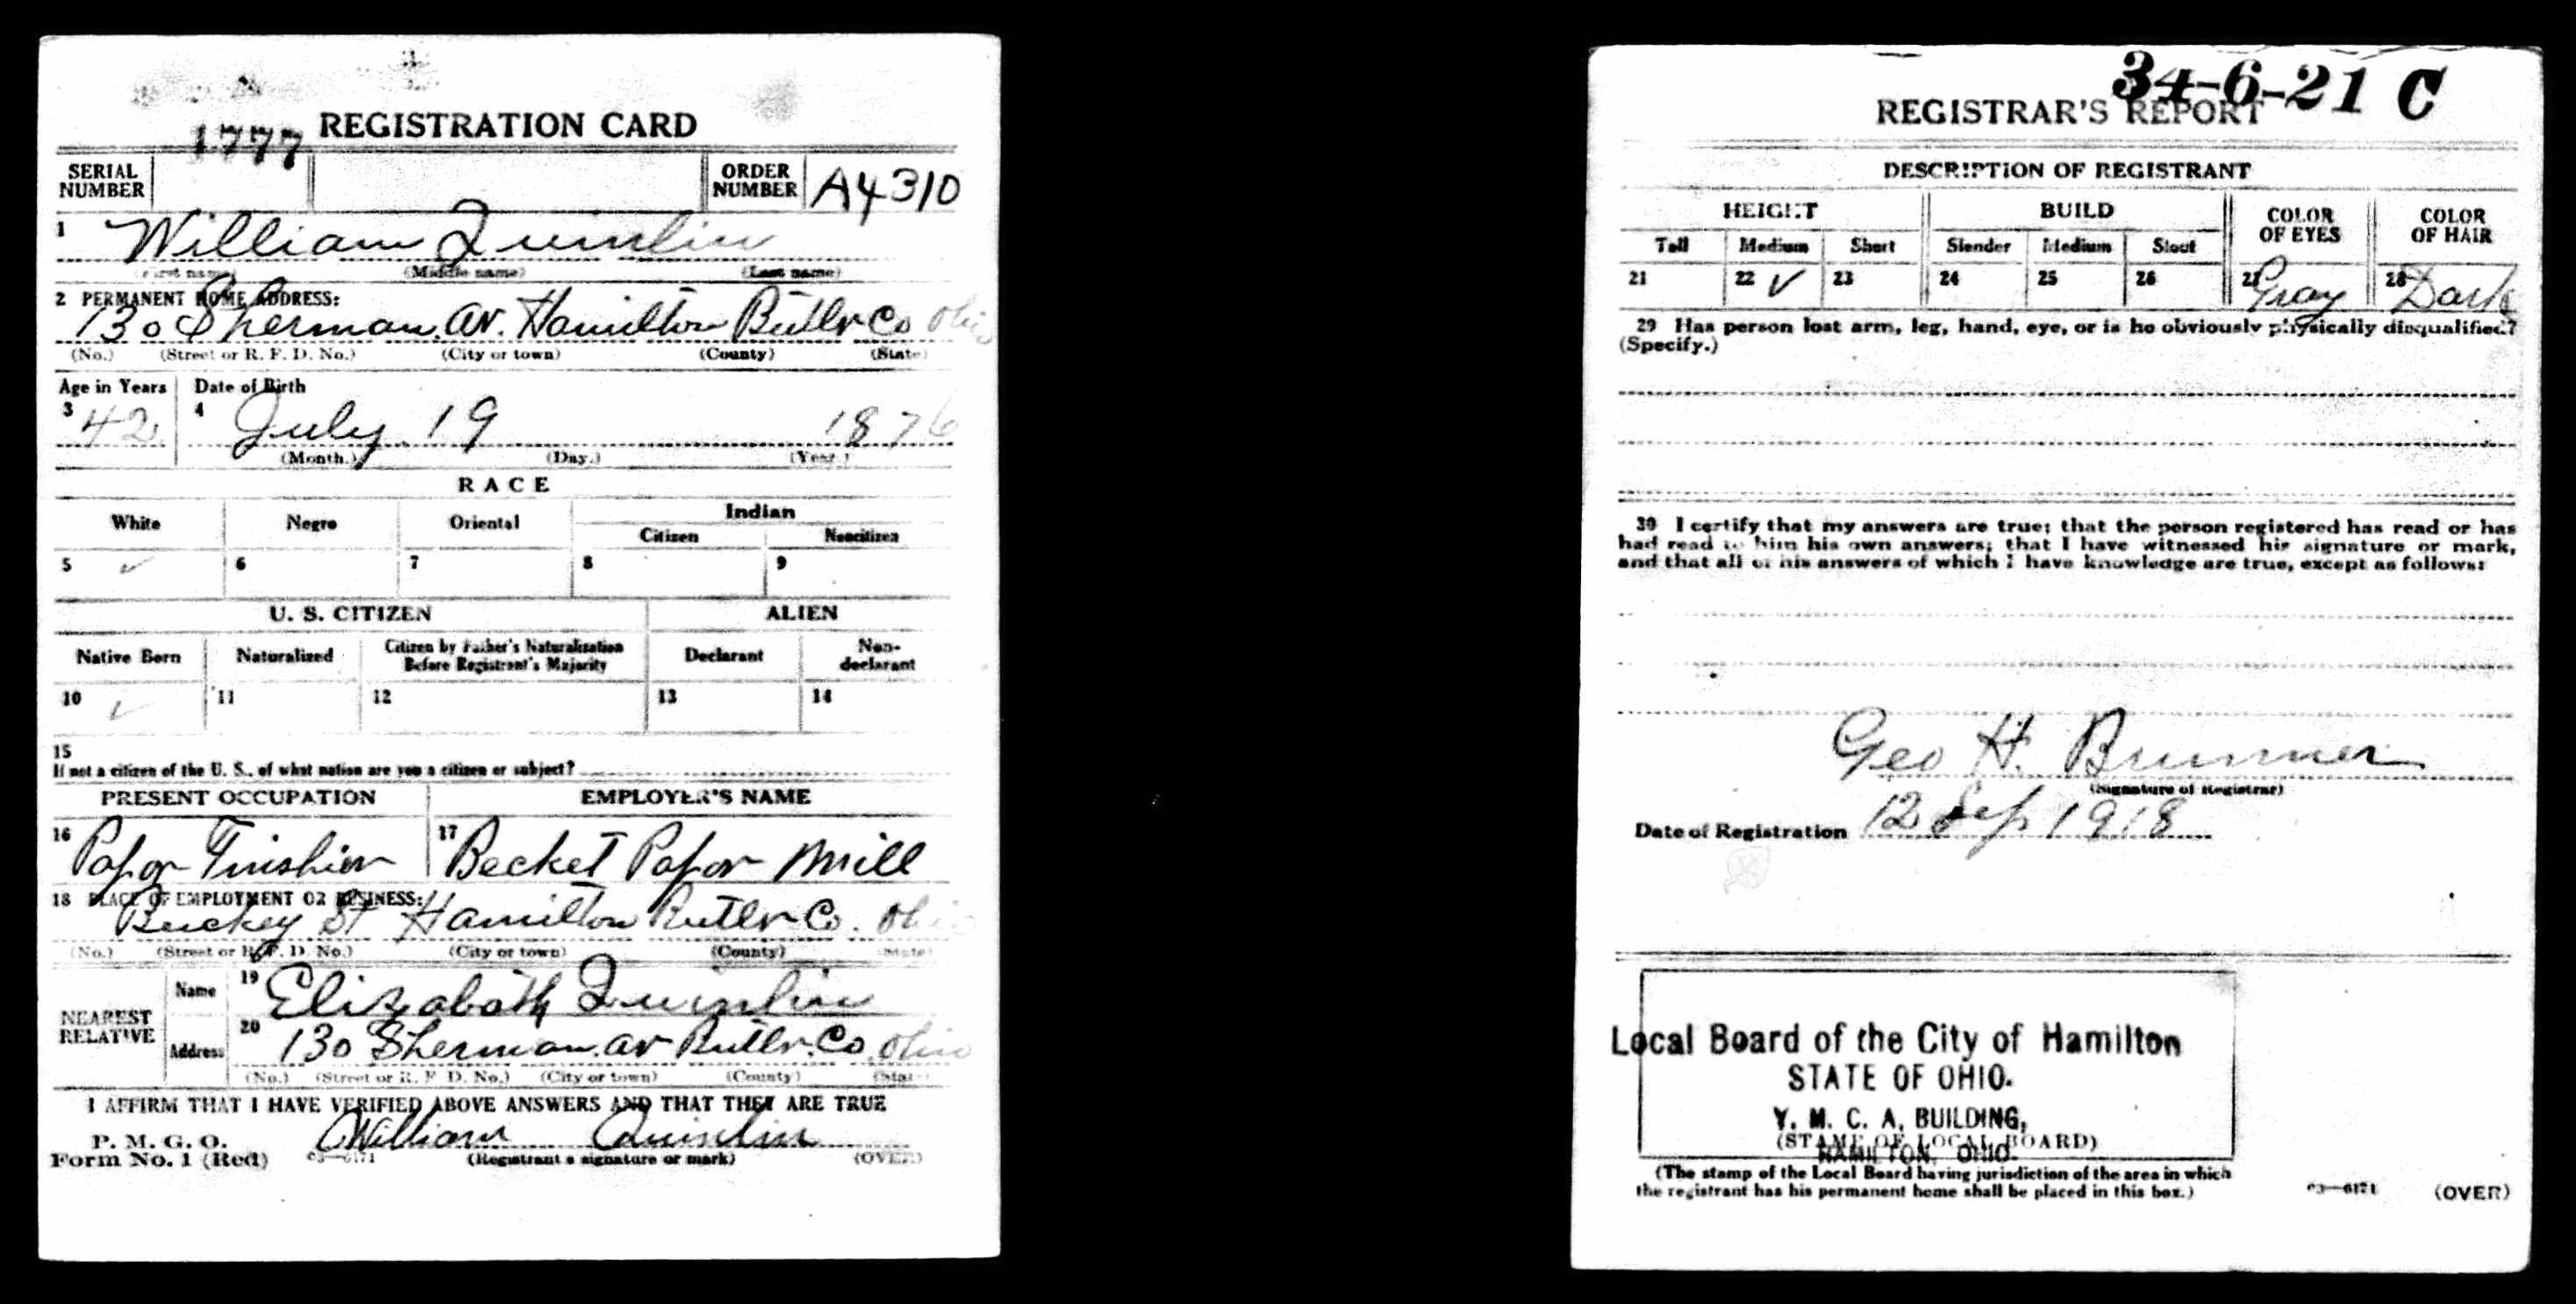 REGISTRATION CARD
1777
SERIAL NUMBER
ORDER NUMBER A4310
1 William Quinlin
(First name) (Middle name) (Last name)
2 PERMANENT HOME ADDRESS:
130 Sherman av. Hamilton Butler Co Ohio
(No.) (Street or R. F. D. No.) (City or town) (County) (State)
Age in Years Date of Birth
3 42 4 July 19 1876
(Month.) (Day.) (Year.)
RACE
White Negro Oriental Indian
Citizen Noncitizen
5 ✓ 6 7 8 9
U. S. CITIZEN ALIEN
Native Born Naturalized Citizen by Father's Naturalization Before Registrant's Majority Declarant Non-declarant
10 ✓ 11 12 13 14
15
If not a citizen of the U. S., of what nation are you a citizen or subject?
PRESENT OCCUPATION EMPLOYER'S NAME
16 Papor Finishier 17 Becket Papor Mill
18 PLACE OF EMPLOYMENT OR BUSINESS:
Buckey St Hamilton Butler Co. Ohio
(No.) (Street or R. F. D. No.) (City or town) (County) (State)
NEAREST RELATIVE
Name 19 Elizabath Quinlin
Address 20 130 Sherman av Butler Co Ohio
(No.) (Street or R. F. D. No.) (City or town) (County) (State)
I AFFIRM THAT I HAVE VERIFIED ABOVE ANSWERS AND THAT THEY ARE TRUE
P. M. G. O.
Form No. 1 (Red) 03—6171 William Quinlin
(Registrant's signature or mark) (OVER)
34-6-21 C
REGISTRAR'S REPORT
DESCRIPTION OF REGISTRANT
HEIGHT BUILD COLOR OF EYES COLOR OF HAIR
Tall Medium Short Slender Medium Stout
21 22 ✓ 23 24 25 26 27 Gray 28 Dark
29 Has person lost arm, leg, hand, eye, or is he obviously physically disqualified?
(Specify.)
30 I certify that my answers are true; that the person registered has read or has
had read to him his own answers; that I have witnessed his signature or mark,
and that all of his answers of which I have knowledge are true, except as follows:
Geo H. Brunner
(Signature of Registrar)
Date of Registration 12 Sep 1918
Local Board of the City of Hamilton
STATE OF OHIO.
Y. M. C. A. BUILDING,
(STAMP OF LOCAL BOARD)
HAMILTON, OHIO.
(The stamp of the Local Board having jurisdiction of the area in which
the registrant has his permanent home shall be placed in this box.)
03—6171 (OVER)